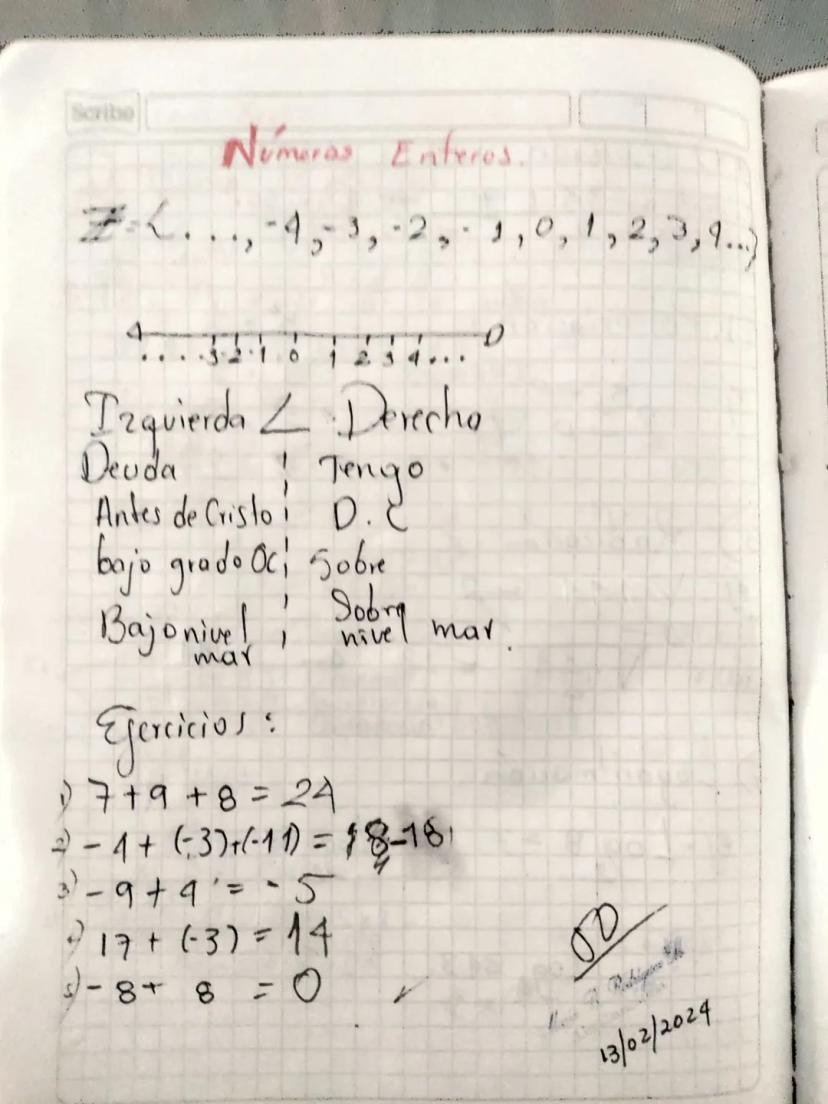 Scribe
Números Enteros.
Z = { ..., -4, -3, -2, -1, 0, 1, 2, 3, 4...}
.... -3 -2 -1 0 1 2 3 4 ...
Izquierda < Derecho
Deuda Tengo
Antes de Cristo D.C
bajo grado 0c Sobre
Bajo nivel mar Sobre nivel mar.
Ejercicios:
1) 7 + 9 + 8 = 24
2) - 4 + (-3)+(-11) = -18
3) - 9 + 4 = - 5
4) 17 + (-3) = 14
5) - 8 + 8 = 0
50
13/02/2024